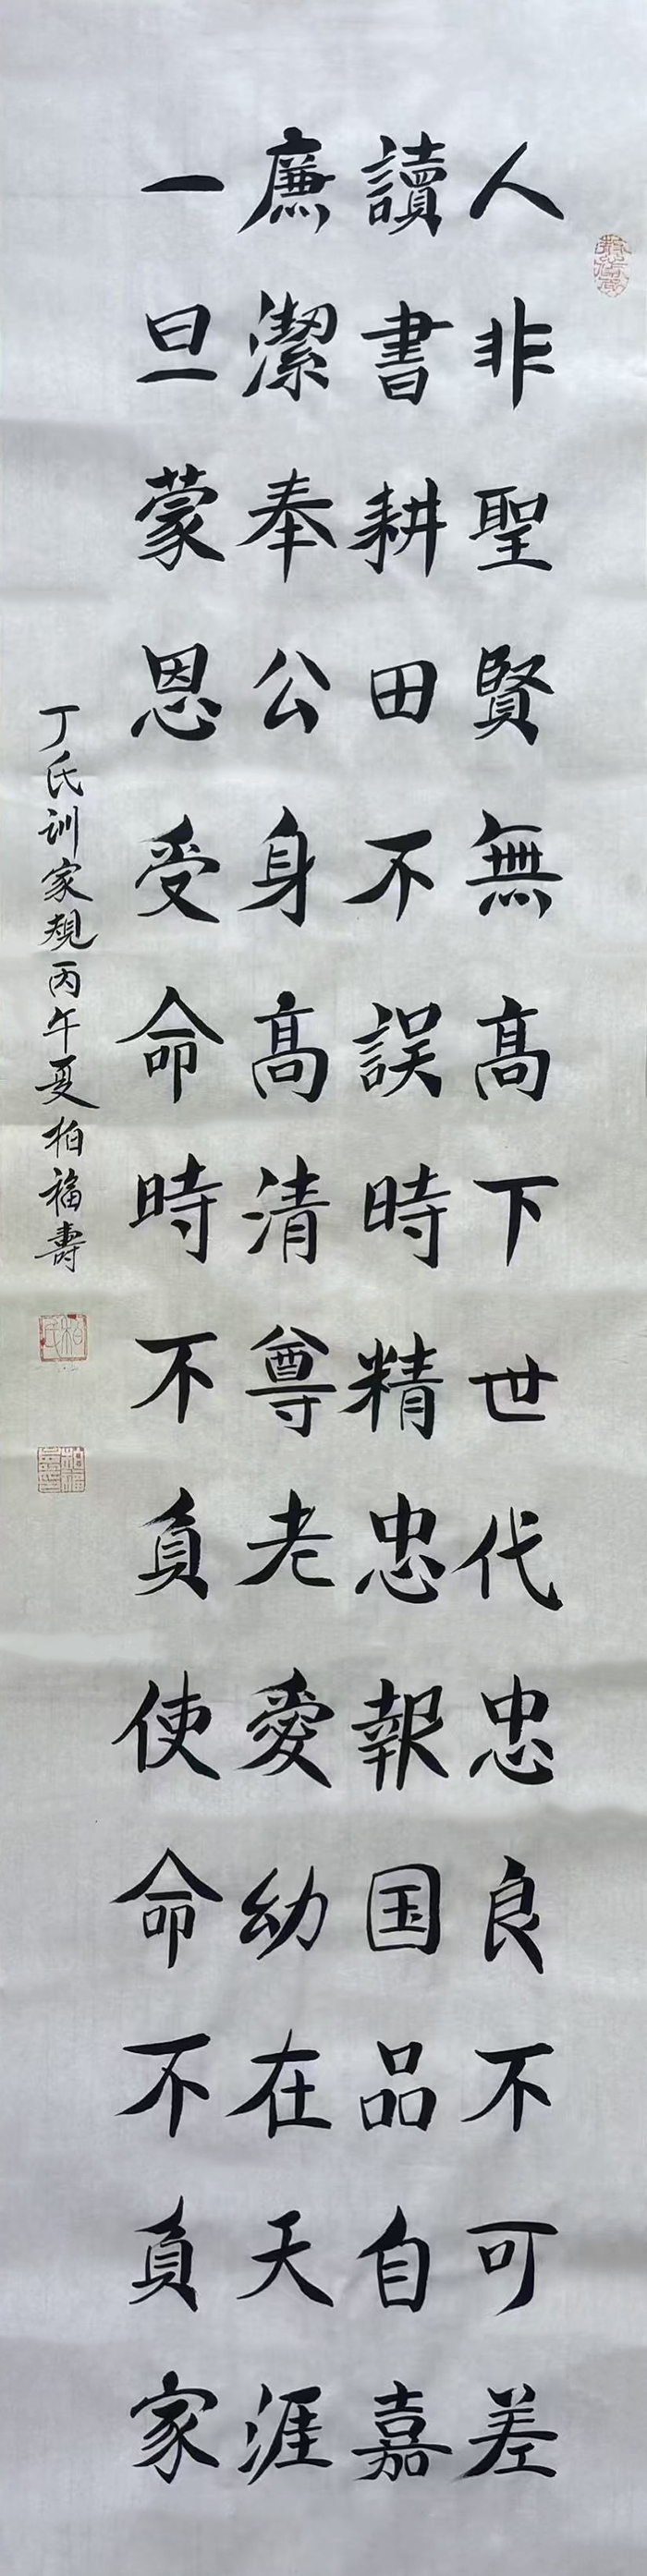 人非聖賢無髙下世代忠良不可差
讀書耕田不誤時精忠報国品自嘉
廉潔奉公身髙清尊老愛幼在天涯
一旦蒙恩受命時不負使命不負家
丁氏训家規丙午夏柏福壽